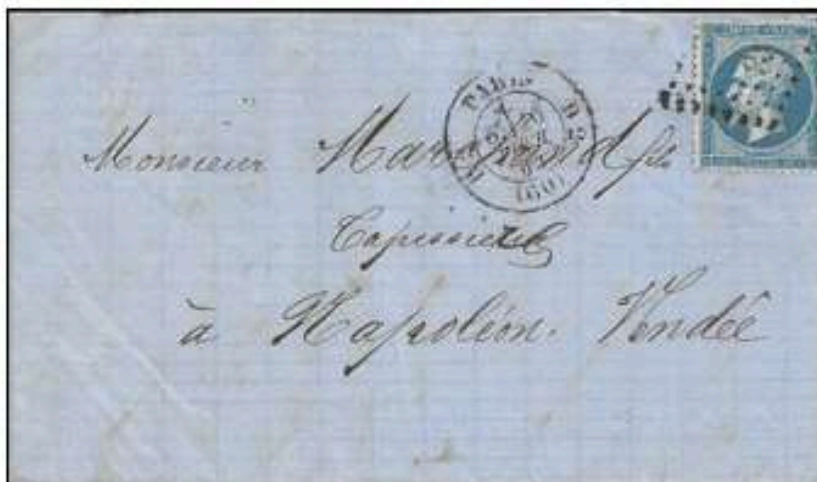 PARIS
(60)
Monsieur Marchand fils
Tapissier
à Napoléon-Vendée